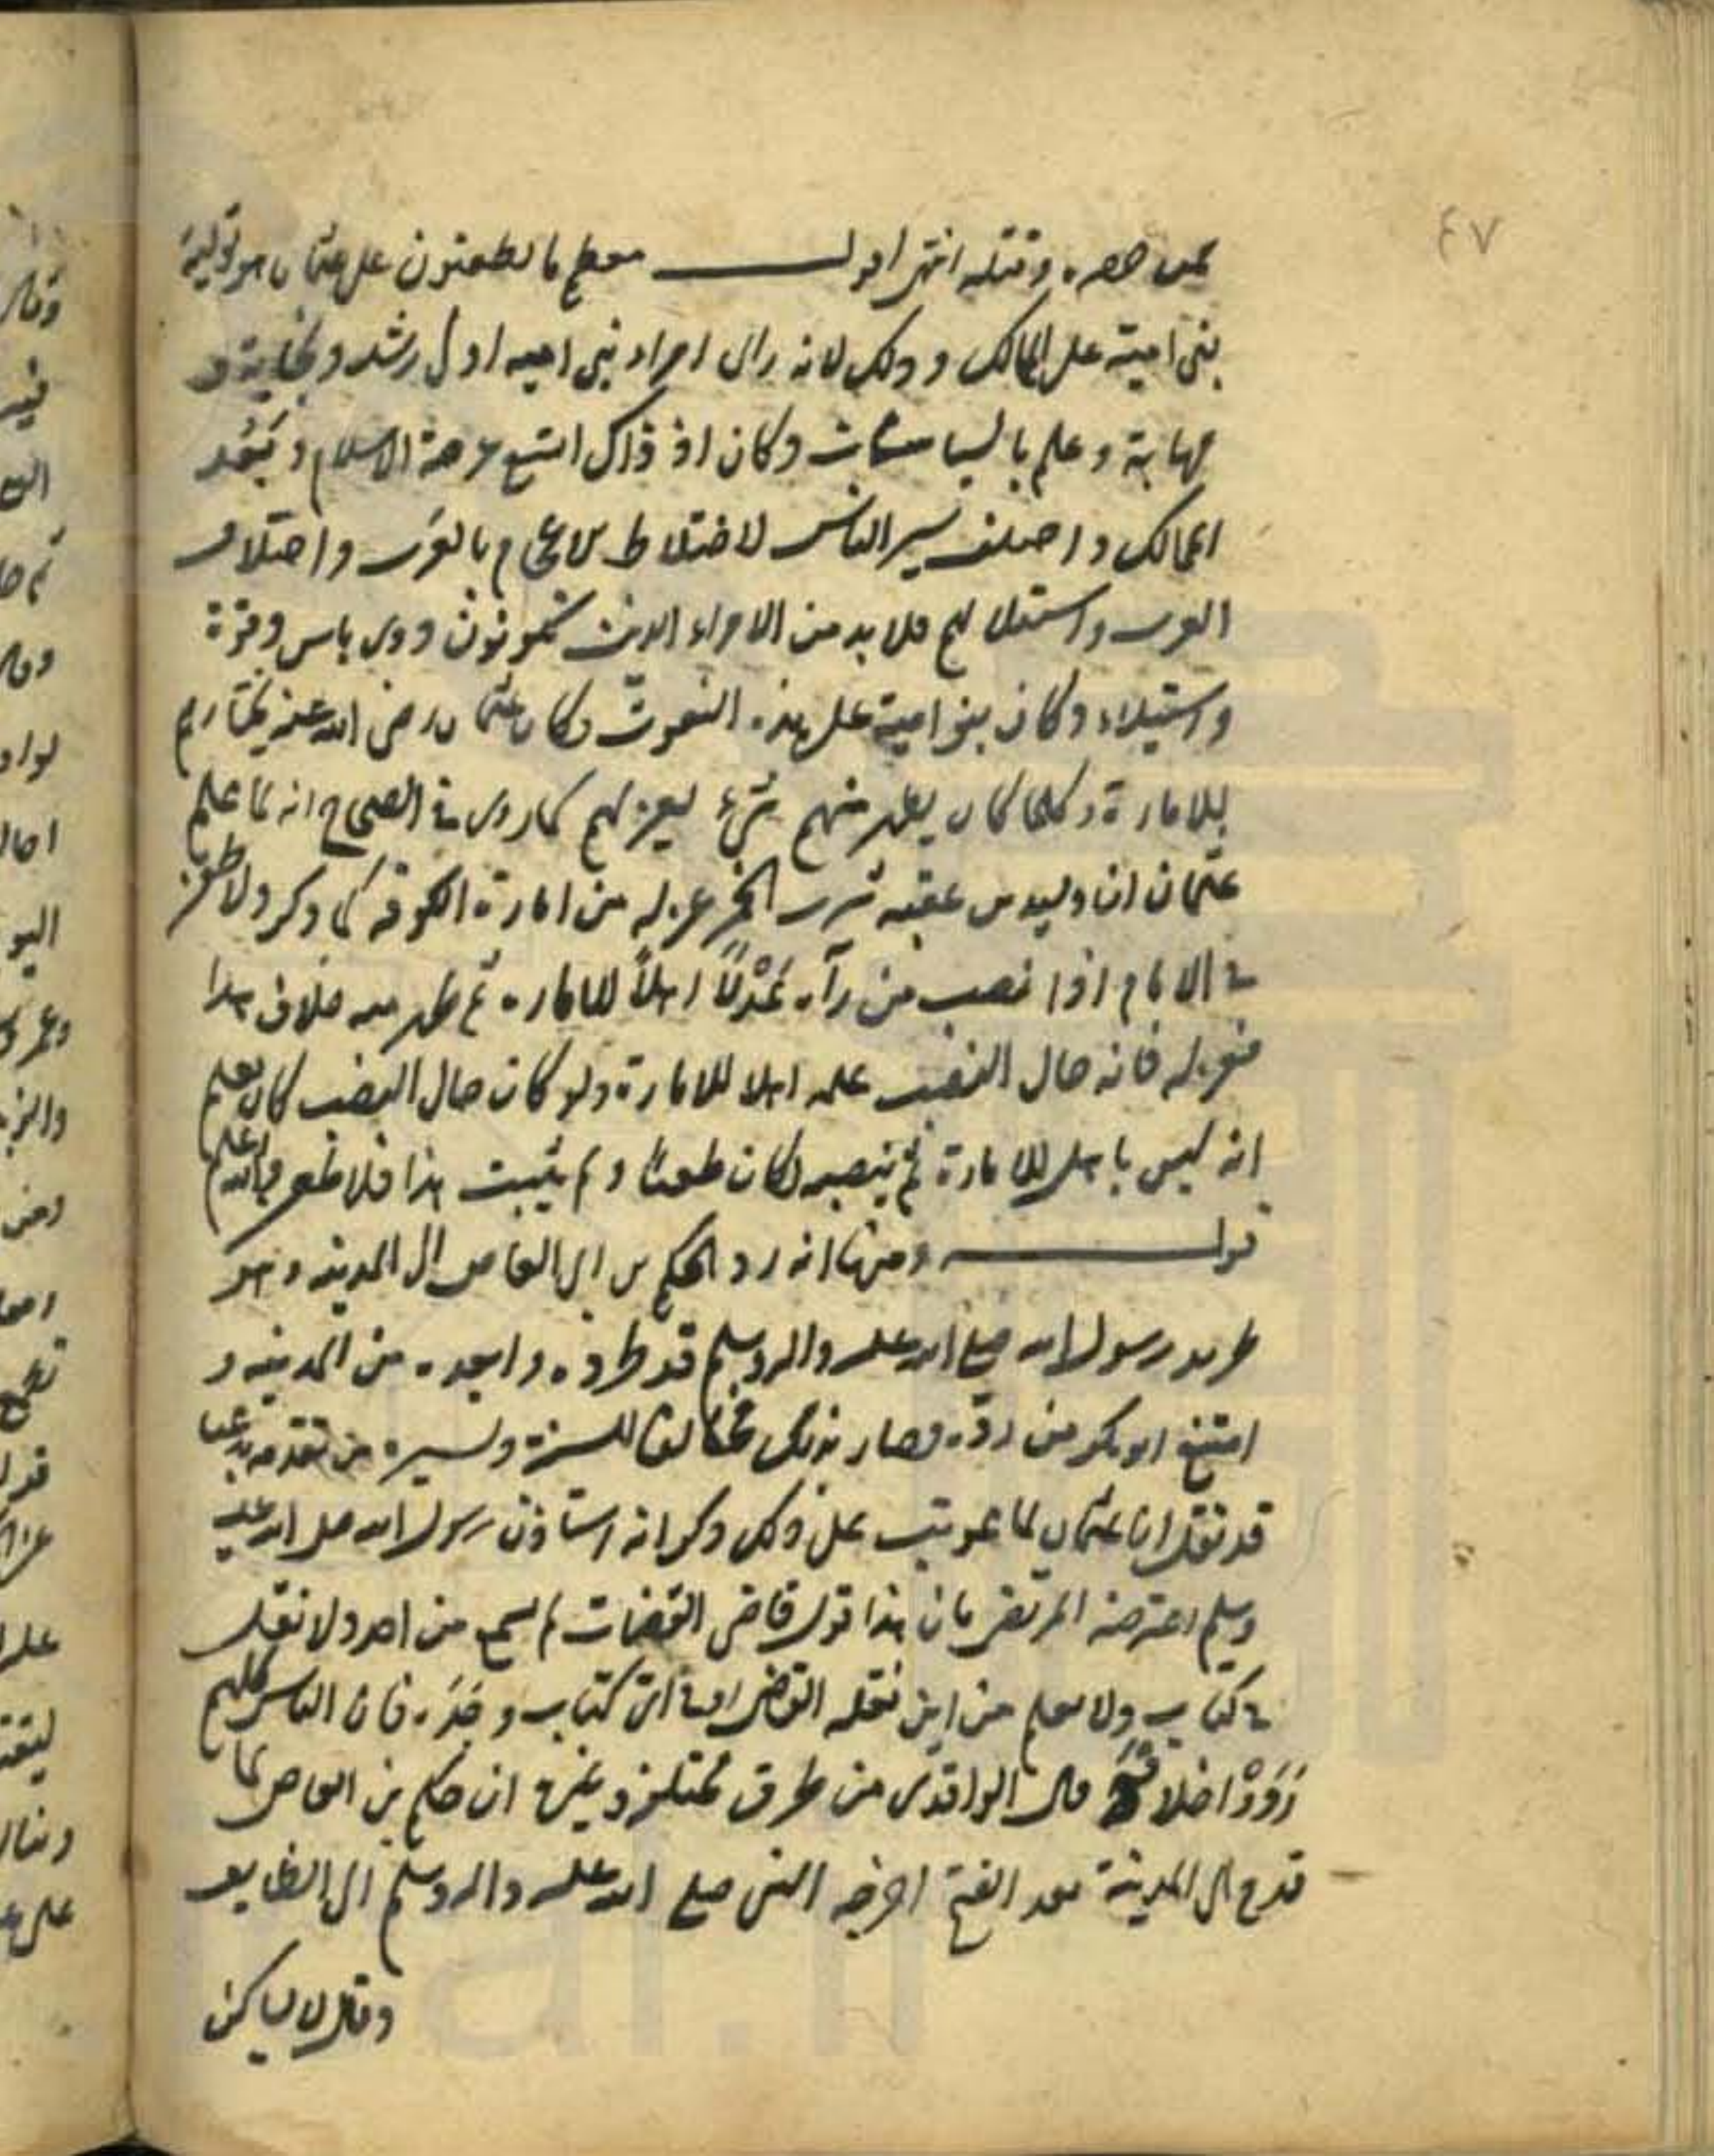 ٤٧
حصره وقتله انتهى اقول معظم ما يطعنون على عثمان هو تولية
بنى امية على الممالك وذلك لانه رأى امراء بنى اميه اولى رشد ونجابة و
مهابة وعلم بالسياسات وكان اذ ذاك اتسع عرصة الاسلام وبَعُد
الممالك واختلف سير الناس لاختلاط الاعجام بالعرب واختلاف
العرب واستقلالهم فلا بد من الامراء الذين يكونون ذوى باس وقوة
واستيلاء وكان بنو امية على هذه النعوت وكان عثمان رضى الله عنه يختارهم
للامارة وكلما كان يظهر منهم شىء يعزلهم كما روى فى الصحاح انه لما علم
عثمان ان وليد بن عقبه شرب الخمر عزله من امارة الكوفة كما ذكر ولا طعن
فى الامام اذا نصب من رآه عَدْلاً اهلاً للاماره ثم ظهر منه خلاف هذا
فعزله فانه حال النصب علمه اهلا للامارة ولو كان حال النصب كان يعلم
انه ليس باهل للامارة ثم ينصبه لكان طعنا ولم يثبت هذا فلا طعن والله اعلم
قوله ومنها انه رد الحكم بن ابى العاص الى المدينه وهو
طريد رسول الله صلى الله عليه واله وسلم قد طرده وابعده من المدينه و
امتنع ابو بكر من ردّه فصار بذلك مخالفا للسنة ولسيرة من تقدمه مدعيا
قد نقل ان عثمان لما عوتب على ذلك ذكر انه استاذن رسول الله صلى الله عليه
وسلم اعترضه المرتضى بان هذا قول قاضى القضات لم يسمع من احد ولا نقل
فى كتاب ولا يعلم من اين نقله القاضى او فى اىّ كتاب وجَدَه فان الناس كلهم
رَوَوْا خلافه قال الواقدى من طرق مختلفة وغيره ان حكم بن العاص لما
قدم الى المدينة بعد الفتح اخرجه النبى صلى الله عليه واله وسلم الى الطايف
وقال لا يساكنى